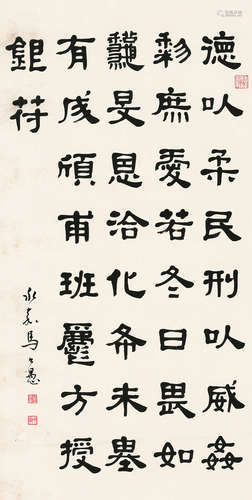 德以柔民刑以威姦
黎庶愛若冬日畏如
龝旻恩洽化布未
有成甫班爵方授
銀苻
永嘉馬公愚